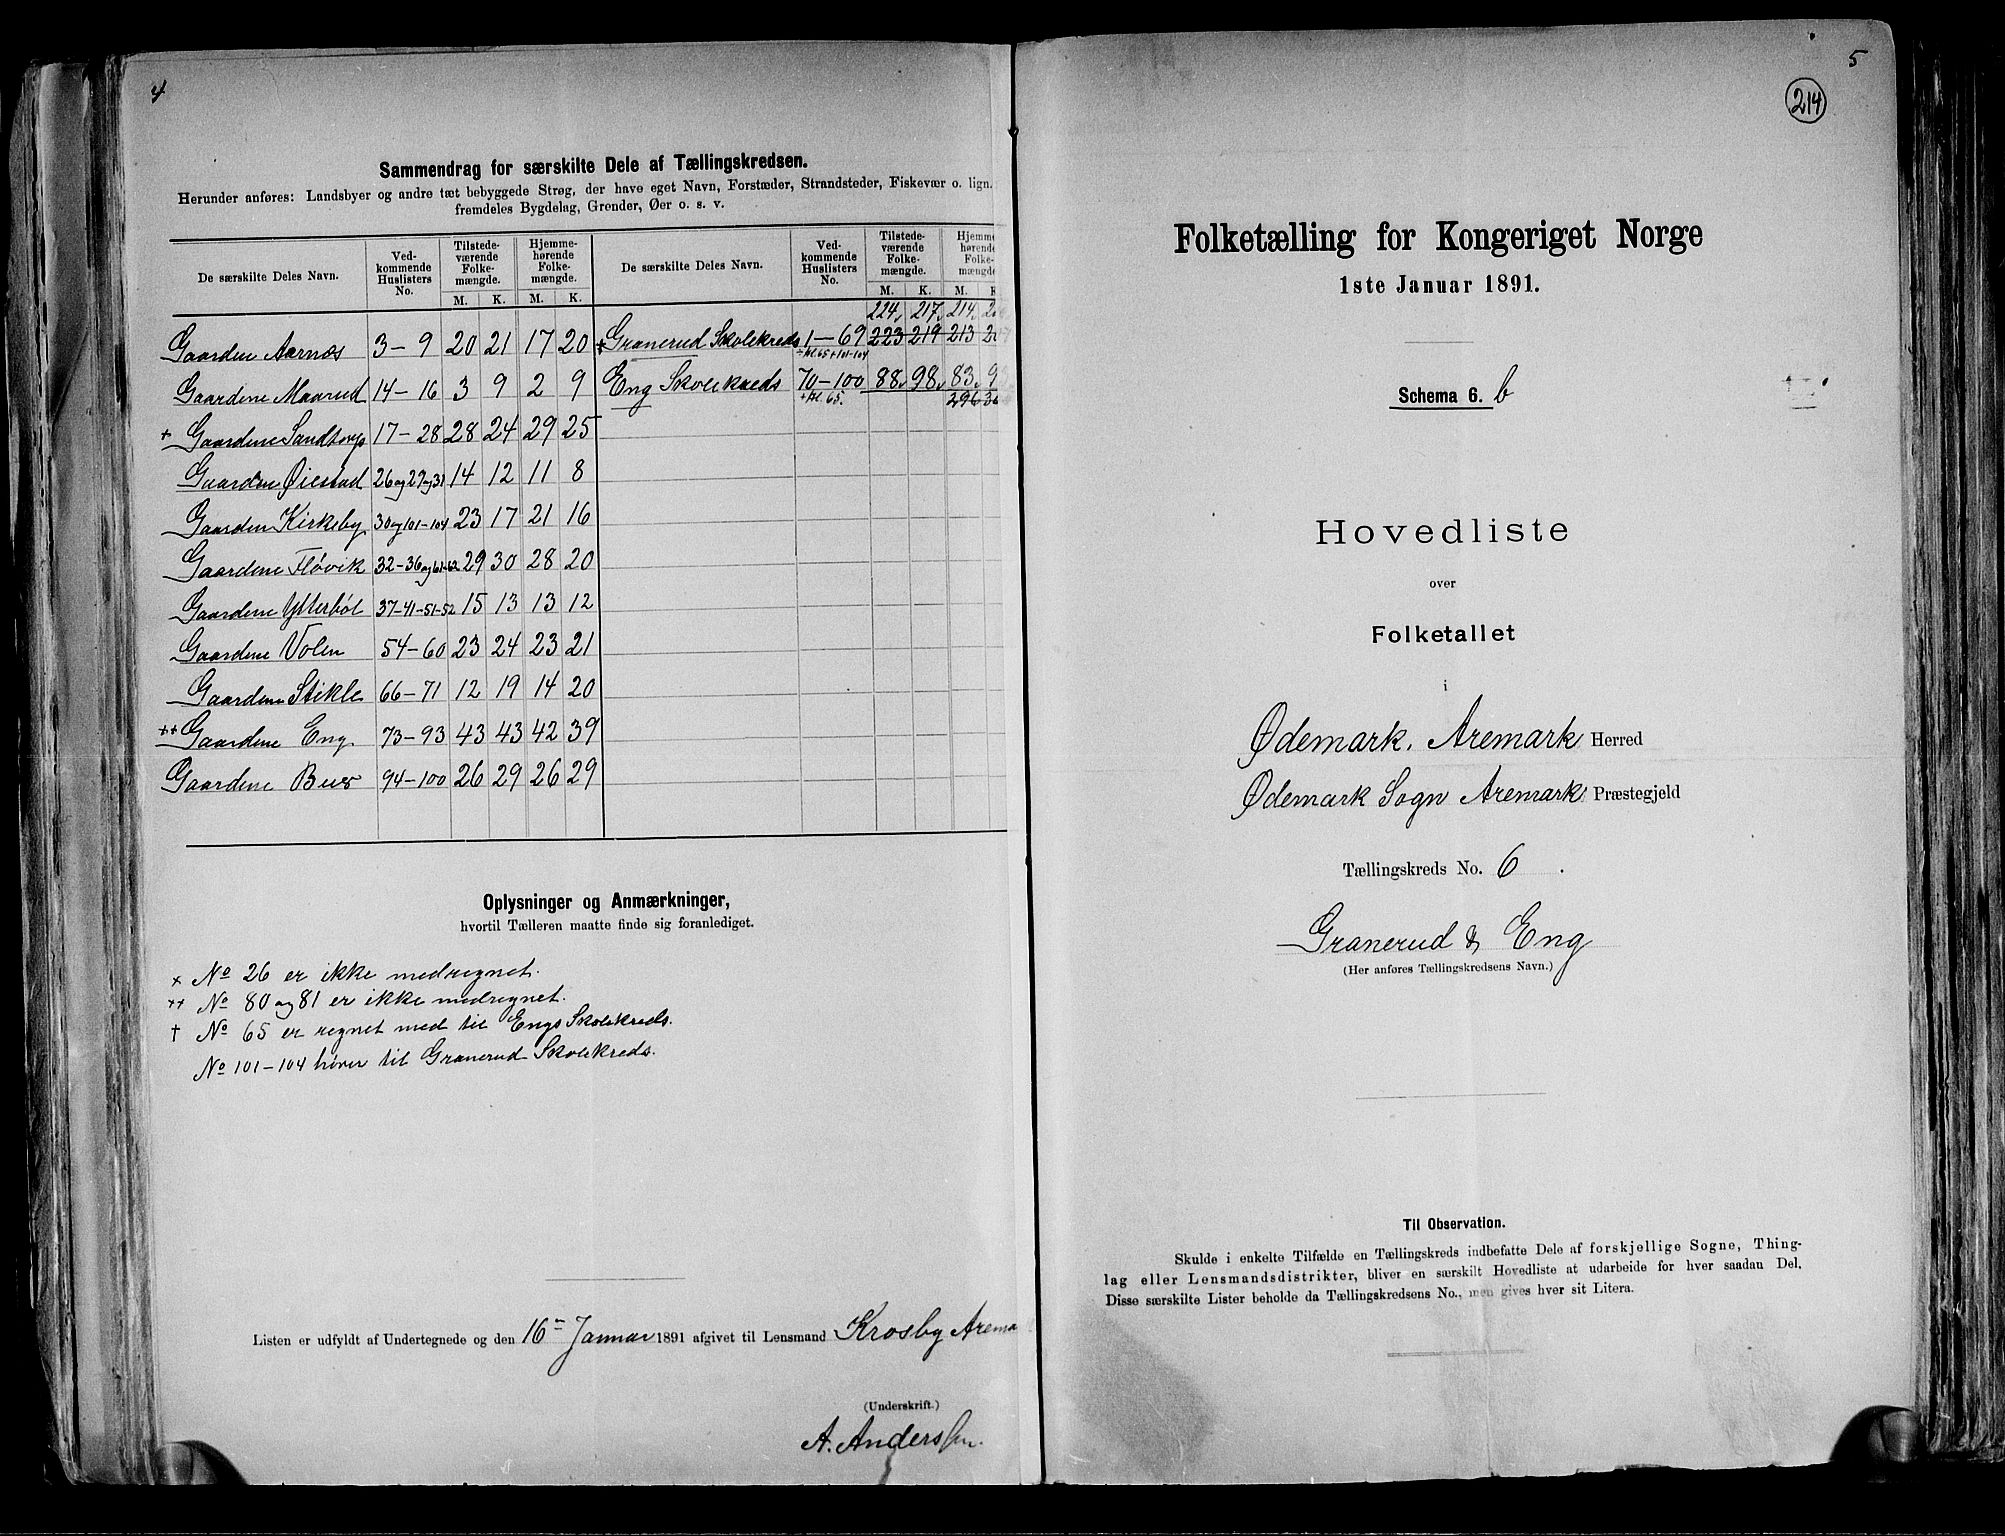 4
Sammendrag for særskilte Dele af Tællingskredsen.
Herunder anføres: Landsbyer og andre tæt bebyggede Strøg, der have eget Navn, Forstæder, Strandsteder, Fiskevær o. lign.
fremdeles Bygdelag, Grender, Øer o. s. v.
De særskilte Deles Navn. Ved-kommende Huslisters No. Tilstede-værende Folke-mængde. Hjemme-hørende Folke-mængde. De særskilte Deles Navn. Ved-kommende Huslisters No. Tilstede-værende Folke-mængde. Hjemme-hørende Folke-mængde
M. K. M. K. M. K. M. K
224, 217, 214,
Gaarden Aarnæs 3-9 20 21 17 20 Granerud Skolekreds 1-69 223 219 213
÷ Hl. 65 + 101-104
Gaardene Maarud 14-16 3 9 2 9 Eng Skolekreds 70-100 88, 98, 83, 9
+ Hl. 65. 296
+ Gaardene Sandtorp 17-28 28 24 29 25
Gaardene Øiestad 26 og 29 og 31 14 12 11 8
Gaarden Kirkeby 30 og 101-104 23 17 21 16
Gaardene Fløvik 32-36 og 61-62 29 30 28 20
Gaardene Ytterbøl 37-41-51-52 15 13 13 12
Gaardene Volen 54-60 23 24 23 21
Gaardene Stikle 66-71 12 19 14 20
++ Gaardene Eng 73-93 43 43 42 39
Gaardene Buer 94-100 26 29 26 29
Oplysninger og Anmærkninger,
hvortil Tælleren maatte finde sig foranlediget.
× No 26 er ikke medregnet.
++ No 80 og 81 er ikke medregnet.
† No 65 er regnet med til Engs Skolekreds.
No 101-104 hører til Granerud Skolekreds.
Listen er udfyldt af Undertegnede og den 16 Januar 1891 afgivet til Lensmand Krosby Arema
(Underskrift.)
A. Anderssen.
5
214
Folketælling for Kongeriget Norge
1ste Januar 1891.
Schema 6. b
Hovedliste
over
Folketallet
i
Ødemark. Aremark Herred
Ødemark Sogn Aremark Præstegjeld
Tællingskreds No. 6.
Granerud & Eng
(Her anføres Tællingskredsens Navn.)
Til Observation.
Skulde i enkelte Tilfælde en Tællingskreds indbefatte Dele af forskjellige Sogne, Thing-
lag eller Lensmandsdistrikter, bliver en særskilt Hovedliste at udarbeide for hver saadan Del.
Disse særskilte Lister beholde da Tællingskredsens No., men gives hver sit Litera.